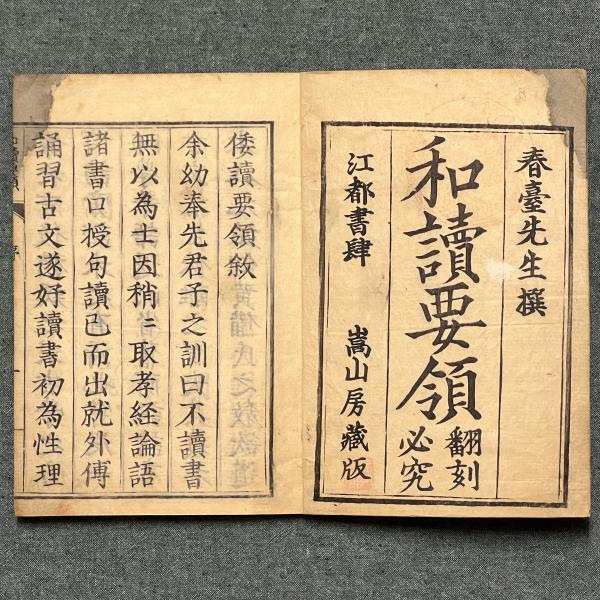 春臺先生撰
和讀要領
翻刻
必究
江都書肆 嵩山房藏版
倭讀要領敘
余幼奉先君子之訓曰不讀書
無以為士因稍〻取孝經論語
諸書口授句讀已而出就外傅
誦習古文遂好讀書初為性理